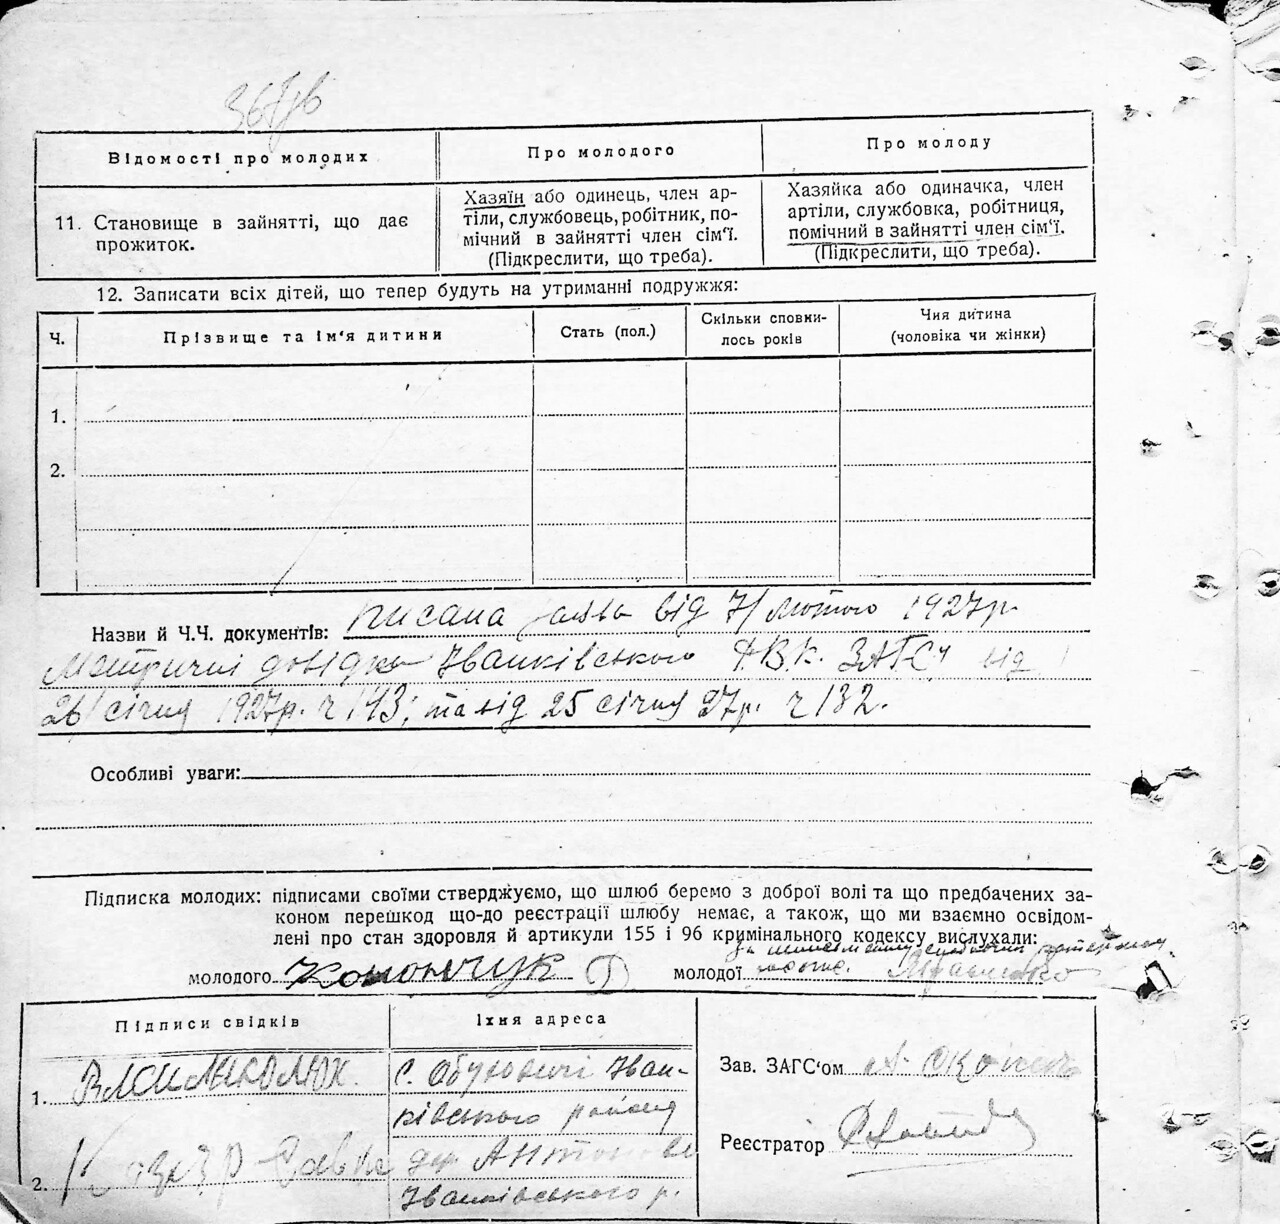 Відомості про молодих
Про молодого
Про молоду
11. Становище в зайнятті, що дає
прожиток.
Хазяїн або одинець, член ар-
тіли, службовець, робітник, по-
мічний в зайнятті член сім'ї.
(Підкреслити, що треба).
Хазяйка або одиначка, член
артіли, службовка, робітниця,
помічний в зайнятті член сім'ї.
(Підкреслити, що треба).
12. Записати всіх дітей, що тепер будуть на утриманні подружжя:
Ч.
Прізвище та ім'я дитини
Стать (пол.)
Скільки сповни-
лось років
Чия дитина
(чоловіка чи жінки)
1.
2.
Назви й Ч.Ч. документів: писана заява від 7/ лютого 1927р.
Метричні довідки Іванківського РВК. ЗАГСу від
26/ січня 1927р. ч 143; та від 25 січня 27р. ч 132.
Особливі уваги:
Підписка молодих: підписами своїми стверджуємо, що шлюб беремо з доброї волі та що предбачених за-
коном перешкод що-до реєстрації шлюбу немає, а також, що ми взаємно освідом-
лені про стан здоровля й артикули 155 і 96 кримінального кодексу вислухали:
молодого Кононьчук
молодої
Підписи свідків
Їхня адреса
1.
с. Обуховичі Іван-
ківського району
2. Казмір Савка
Іванківського р.
Зав. ЗАГС'ом
Реєстратор